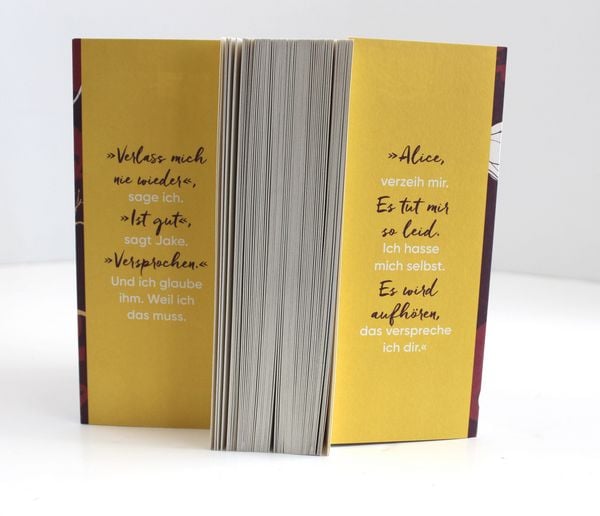 »Verlass mich
nie wieder«,
sage ich.
»Ist gut«,
sagt Jake.
»Versprochen.«
Und ich glaube
ihm. Weil ich
das muss.
»Alice,
verzeih mir.
Es tut mir
so leid.
Ich hasse
mich selbst.
Es wird
aufhören,
das verspreche
ich dir.«